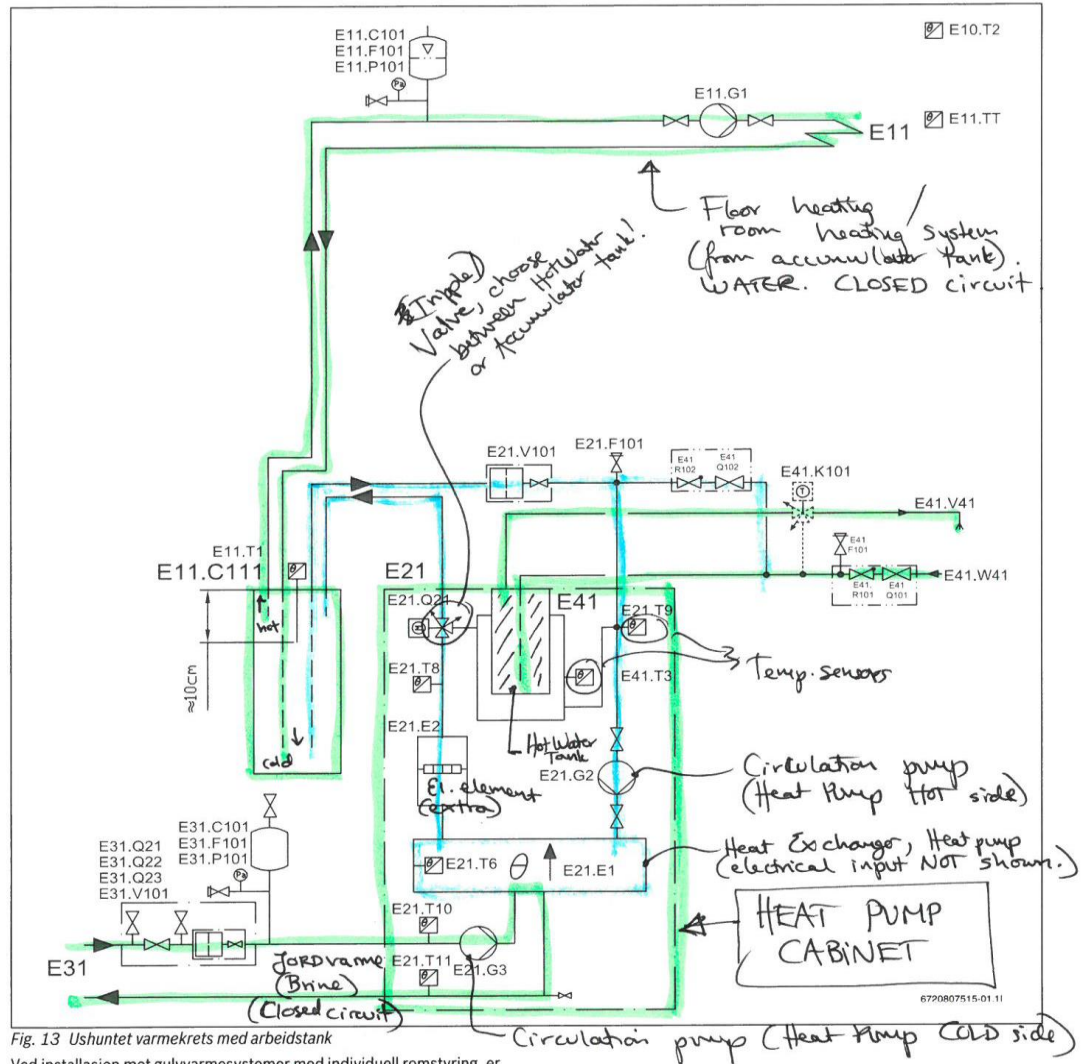 E11.C101
E11.F101
E11.P101
Pa
E10.T2
E11.G1
E11.TT
E11
Floor heating /
room heating system
(from accumulator tank).
WATER. CLOSED circuit.
(Tripple)
Valve, choose
between HotWater
or Accumulator tank!
E21.V101
E21.F101
E41
R102
E41
Q102
E41.K101
T
E41.V41
E41
F101
E41.
R101
E41
Q101
E41.W41
E11.T1
E11.C111
hot
cold
≈10cm
E21
E21.Q21
M
E41
E21.T9
E21.T8
E41.T3
Temp. sensors
E21.E2
El. element
(extra)
HotWater
Tank
E21.G2
Circulation pump
(Heat Pump HOT side)
E21.T6
θ
E21.E1
Heat Exchanger, Heat pump
(electrical input NOT shown.)
E31.C101
E31.F101
E31.P101
Pa
E31.Q21
E31.Q22
E31.Q23
E31.V101
E21.T10
E21.G3
E21.T11
E31
JORDvarme
(Brine)
(Closed circuit)
HEAT PUMP
CABINET
6720807515-01.1I
Fig. 13 Ushuntet varmekrets med arbeidstank
Circulation pump (Heat Pump COLD side)
Ved installasjon mot gulvvarmesystemer med individuell romstyring, er